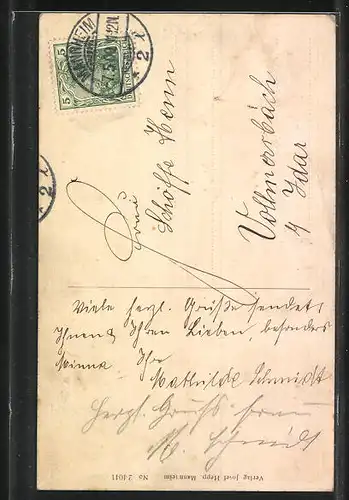 MANNHEIM
5 5
* 2 l
* 2 l
Frau
Schöffe Henn
Vollmersbach
b/ Idar
Viele herzl. Grüße sendet
Ihnen & Ihren Lieben, besonders
Minna Ihre
Mathilde Schmidt
Herzl. Gruss Frau
M. Schmidt
Verlag Josef Hepp, Mannheim
No 24041